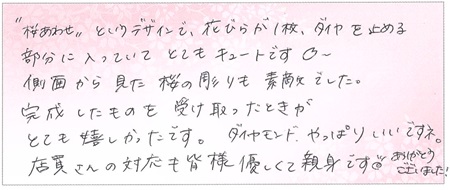 "桜あわせ"というデザインで、花びらが1枚、ダイヤを止める
部分に入っていてとてもキュートです〜
側面から見た桜の彫りも素敵でした。
完成したものを受け取ったときが
とても嬉しかったです。ダイヤモンド、やっぱりいいですネ。
店員さんの対応も皆様優しくて親身です
ありがとう
ございました!